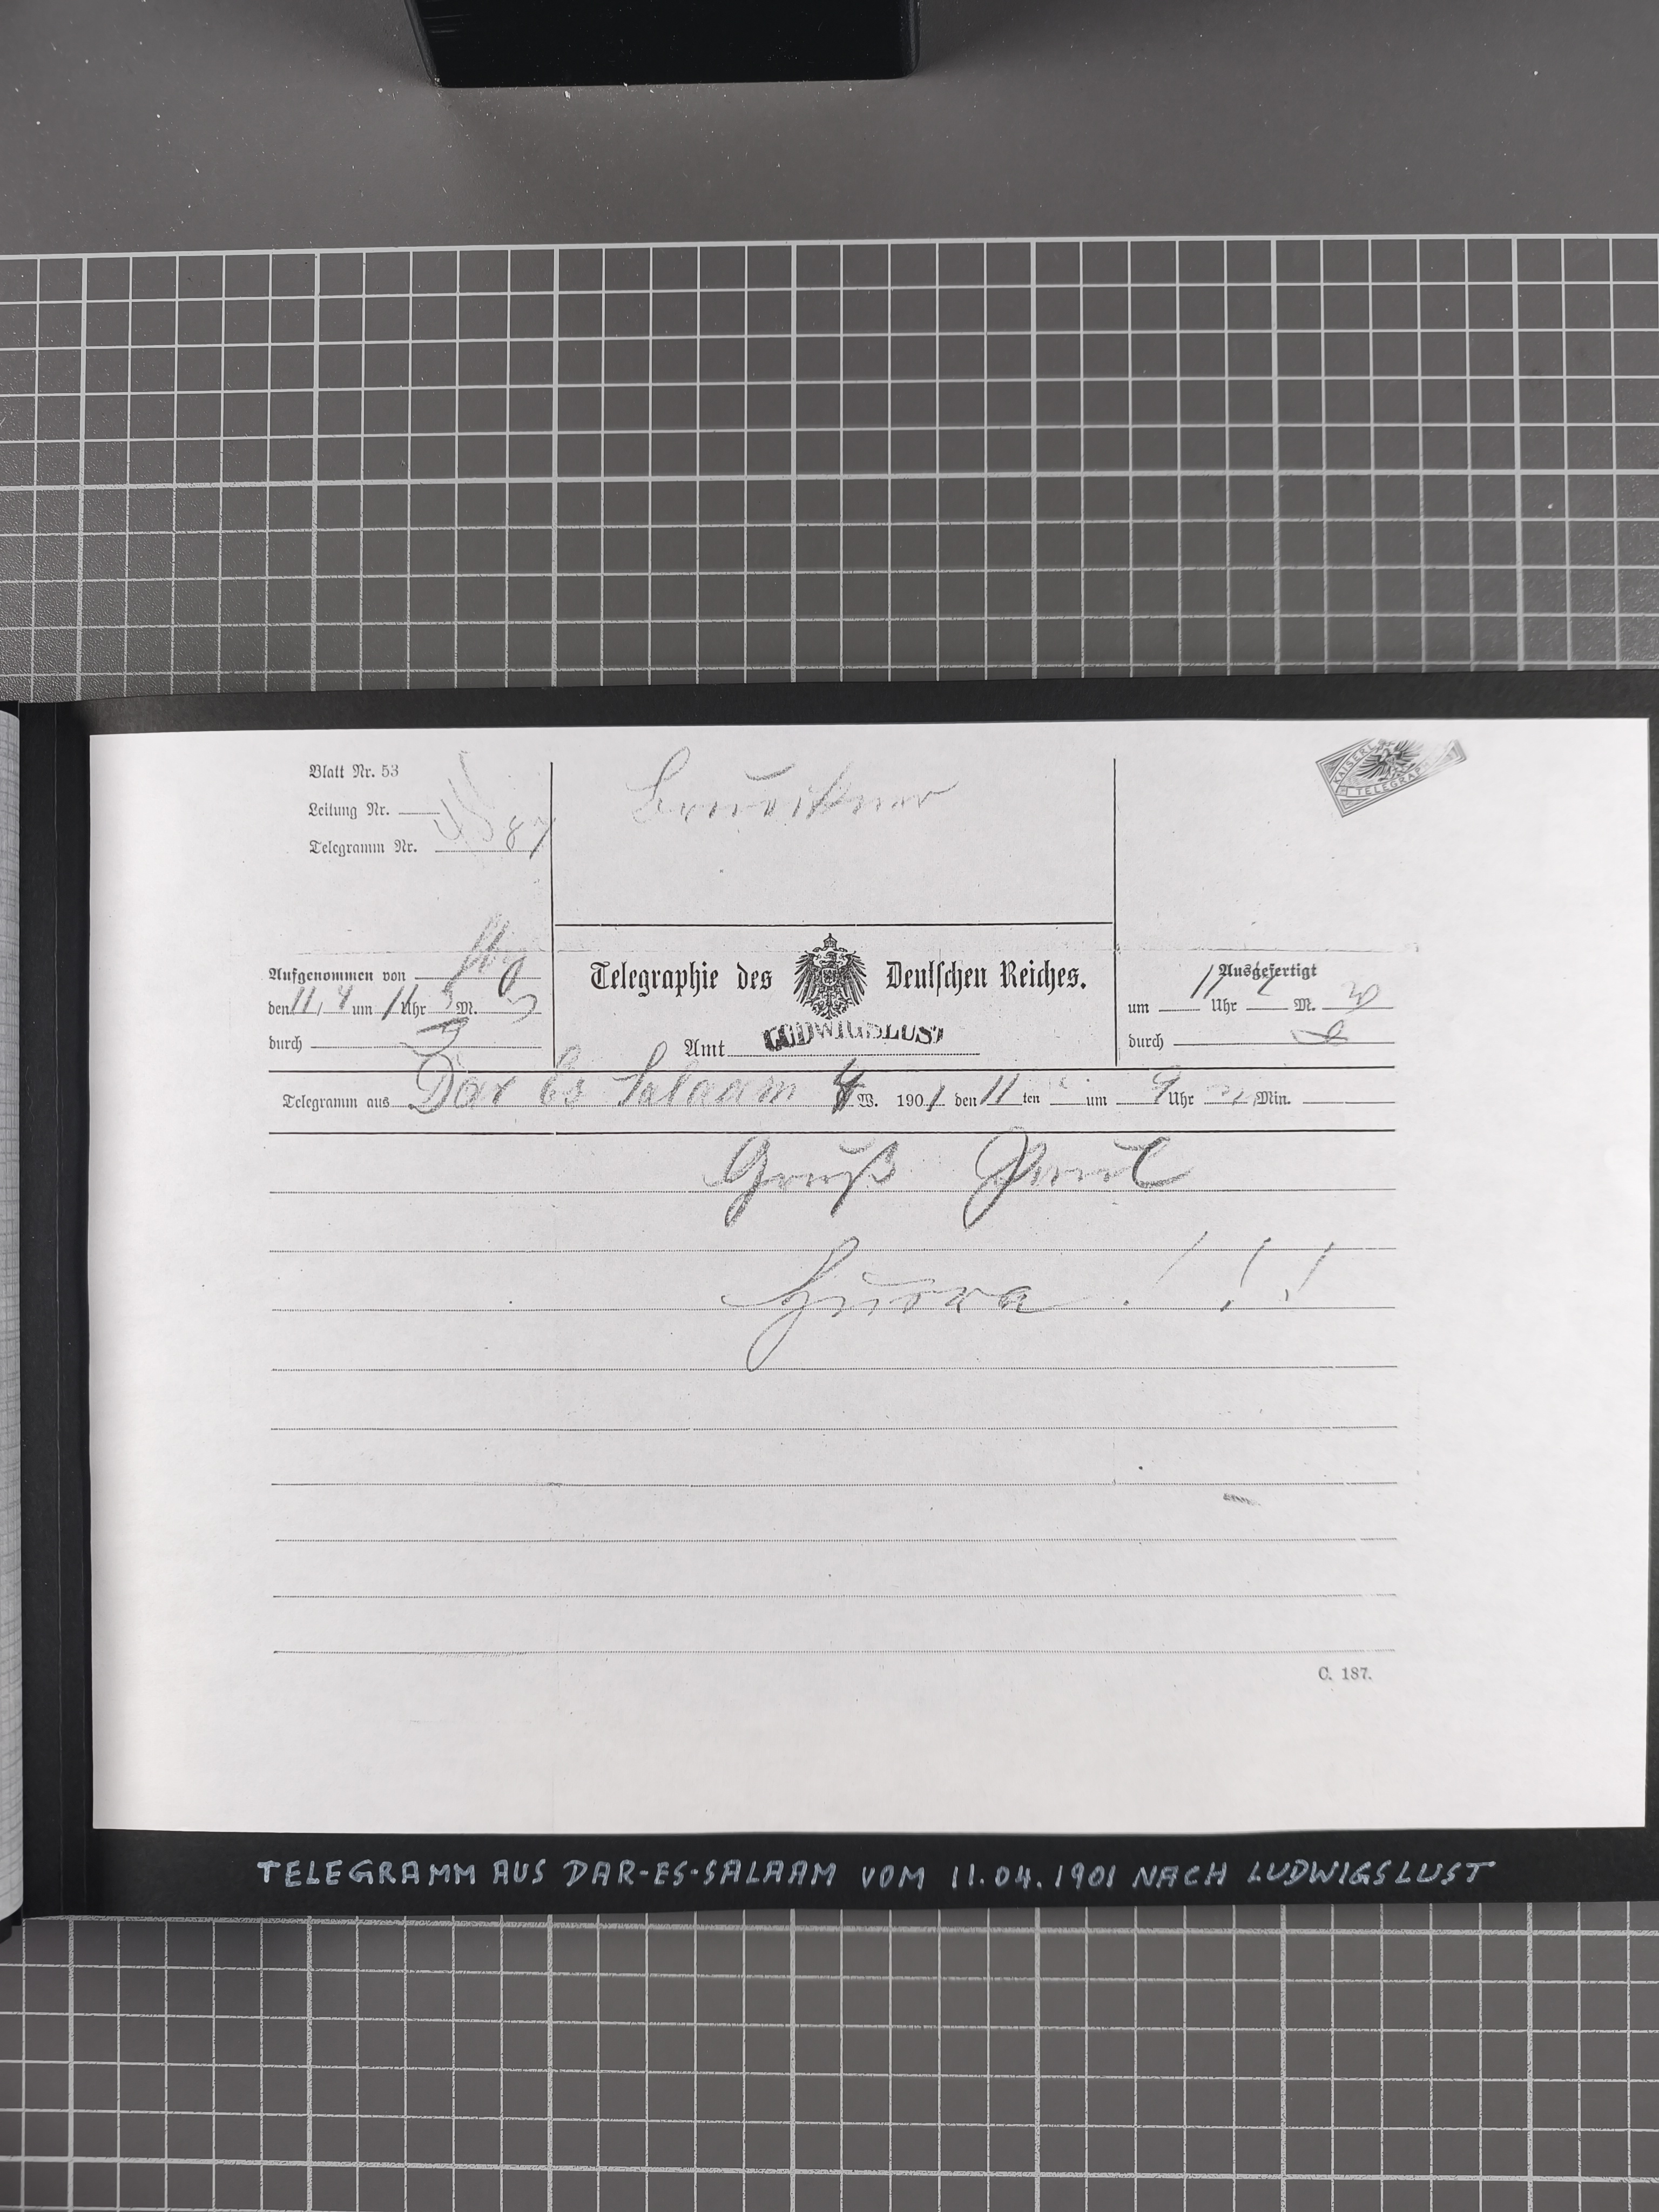 Blatt Nr. 53
Leitung Nr.
Telegramm Nr. 87
KAISERL.
TELEGRAPH
Aufgenommen von Hbg
den 11/4 um 11 Uhr 5 M.
durch
Telegraphie des Deutschen Reiches.
Amt LUDWIGSLUST
Ausgefertigt
um 11 Uhr M.
durch
Telegramm aus Dar Es Salaam W. 1901 den 11 ten um 9 Uhr Min.
Gruß Paul
Hurra !!!
C. 187.
TELEGRAMM AUS DAR-ES-SALAAM VOM 11.04.1901 NACH LUDWIGSLUST